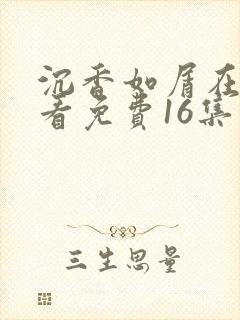 沉香如屑在
看免费16集
三生思量